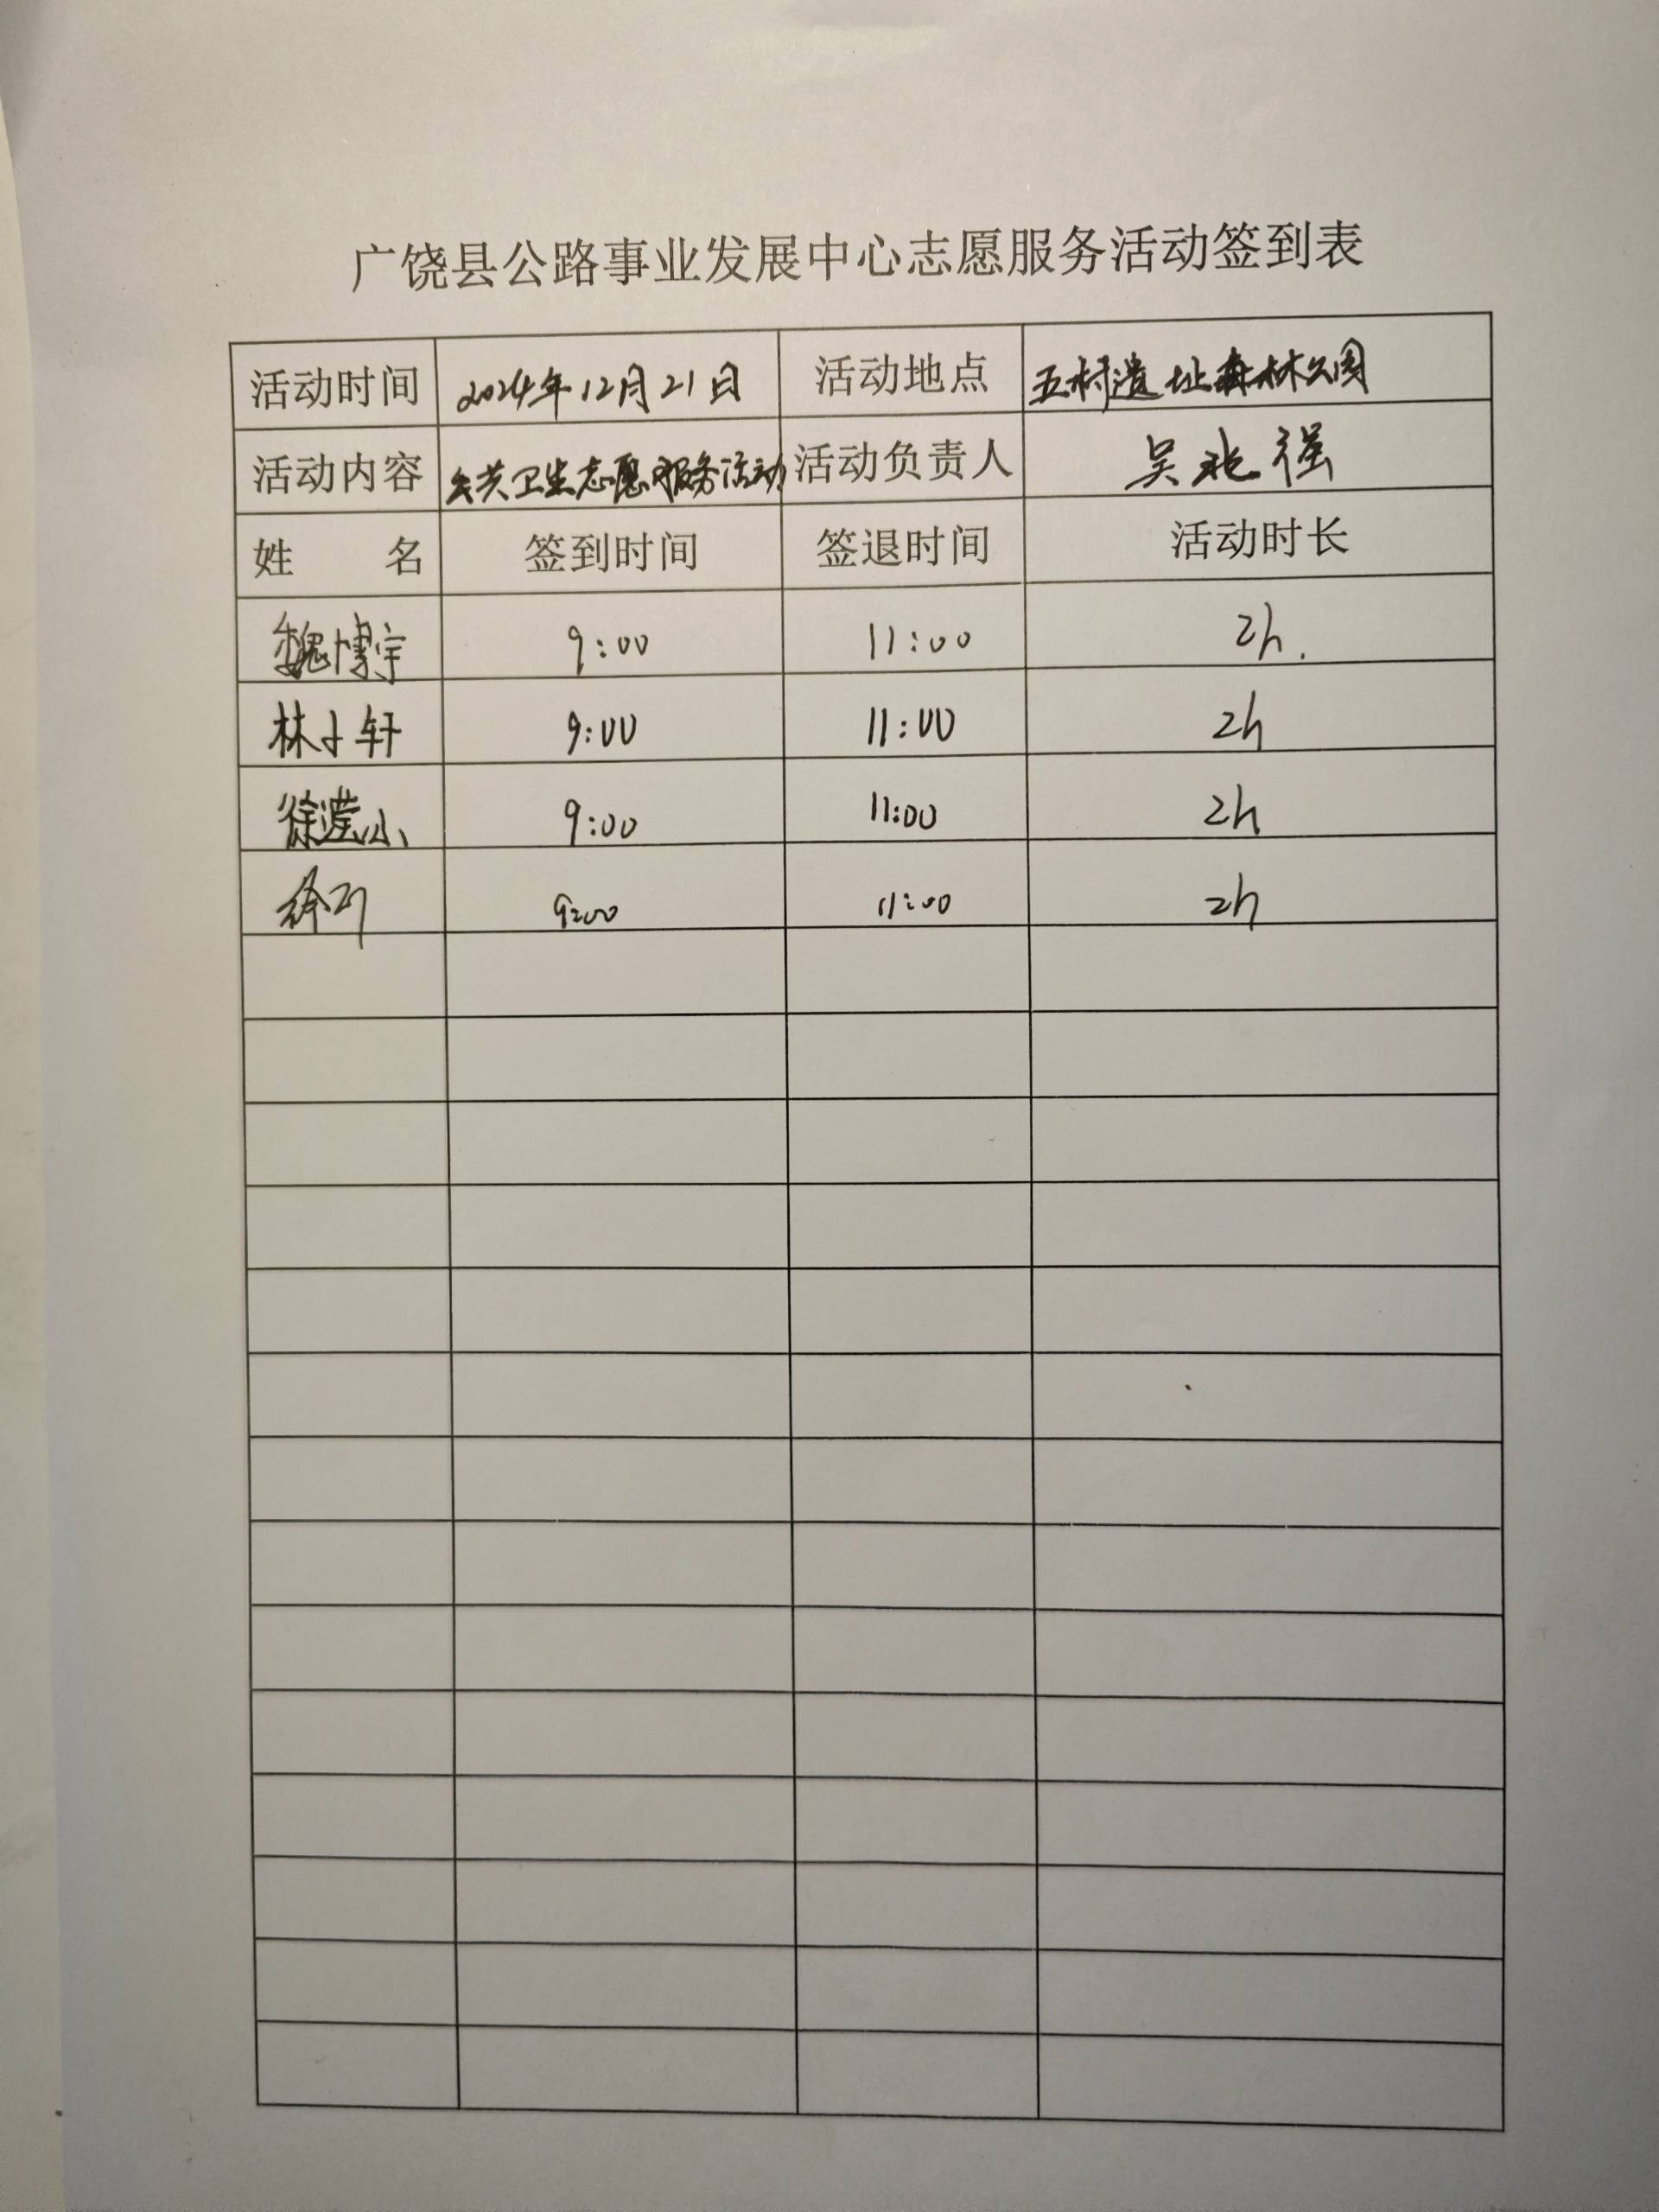 广饶县公路事业发展中心志愿服务活动签到表
活动时间 2024年12月21日 活动地点 五村遗址森林公园
活动内容 公共卫生志愿服务活动 活动负责人 吴兆强
姓 名 签到时间 签退时间 活动时长
魏博宇 9:00 11:00 2h.
林子轩 9:00 11:00 2h
9:00 11:00 2h
9:00 11:00 2h